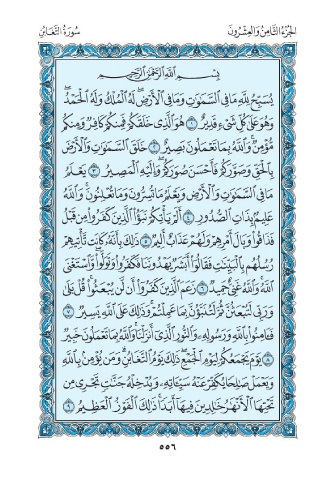 الجزء الثامن والعشرون
سورة التغابن
بِسْمِ اللَّهِ الرَّحْمَٰنِ الرَّحِيمِ
يُسَبِّحُ لِلَّهِ مَا فِي السَّمَٰوَٰتِ وَمَا فِي الْأَرْضِ ۖ لَهُ الْمُلْكُ وَلَهُ الْحَمْدُ ۖ
وَهُوَ عَلَىٰ كُلِّ شَيْءٍ قَدِيرٌ ١ هُوَ الَّذِي خَلَقَكُمْ فَمِنكُمْ كَافِرٌ وَمِنكُم
مُّؤْمِنٌ ۚ وَاللَّهُ بِمَا تَعْمَلُونَ بَصِيرٌ ٢ خَلَقَ السَّمَٰوَٰتِ وَالْأَرْضَ
بِالْحَقِّ وَصَوَّرَكُمْ فَأَحْسَنَ صُوَرَكُمْ ۖ وَإِلَيْهِ الْمَصِيرُ ٣ يَعْلَمُ
مَا فِي السَّمَٰوَٰتِ وَالْأَرْضِ وَيَعْلَمُ مَا تُسِرُّونَ وَمَا تُعْلِنُونَ ۚ وَاللَّهُ
عَلِيمٌ بِذَاتِ الصُّدُورِ ٤ أَلَمْ يَأْتِكُمْ نَبَؤُا۟ الَّذِينَ كَفَرُوا۟ مِن قَبْلُ
فَذَاقُوا۟ وَبَالَ أَمْرِهِمْ وَلَهُمْ عَذَابٌ أَلِيمٌ ٥ ذَٰلِكَ بِأَنَّهُ كَانَت تَّأْتِيهِمْ
رُسُلُهُم بِالْبَيِّنَٰتِ فَقَالُوٓا۟ أَبَشَرٌ يَهْدُونَنَا فَكَفَرُوا۟ وَتَوَلَّوا۟ ۚ وَّاسْتَغْنَى
اللَّهُ ۚ وَاللَّهُ غَنِيٌّ حَمِيدٌ ٦ زَعَمَ الَّذِينَ كَفَرُوٓا۟ أَن لَّن يُبْعَثُوا۟ ۚ قُلْ بَلَىٰ
وَرَبِّي لَتُبْعَثُنَّ ثُمَّ لَتُنَبَّؤُنَّ بِمَا عَمِلْتُمْ ۚ وَذَٰلِكَ عَلَى اللَّهِ يَسِيرٌ ٧
فَـَٔامِنُوا۟ بِاللَّهِ وَرَسُولِهِ وَالنُّورِ الَّذِيٓ أَنزَلْنَا ۚ وَاللَّهُ بِمَا تَعْمَلُونَ خَبِيرٌ
٨ يَوْمَ يَجْمَعُكُمْ لِيَوْمِ الْجَمْعِ ۖ ذَٰلِكَ يَوْمُ التَّغَابُنِ ۗ وَمَن يُؤْمِنۢ بِاللَّهِ
وَيَعْمَلْ صَٰلِحًا يُكَفِّرْ عَنْهُ سَيِّـَٔاتِهِ وَيُدْخِلْهُ جَنَّٰتٍ تَجْرِي مِن
تَحْتِهَا الْأَنْهَٰرُ خَٰلِدِينَ فِيهَآ أَبَدًا ۚ ذَٰلِكَ الْفَوْزُ الْعَظِيمُ ٩
٥٥٦